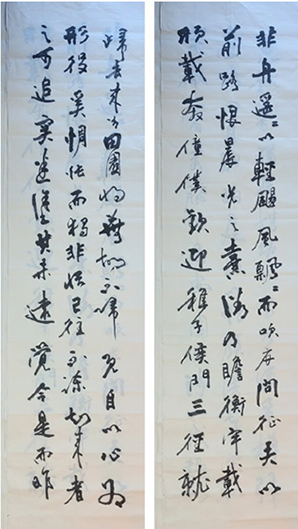 歸去來兮田園將蕪胡不歸既自以心為
形役奚惆悵而獨悲悟已往不諫知來者
之可追實迷途其未遠覺今是而昨
非舟遙々以輕颺風飄々而吹衣問征夫以
前路恨晨光之熹微乃瞻衡宇載
欣載奔僮僕歡迎稚子候門三徑就